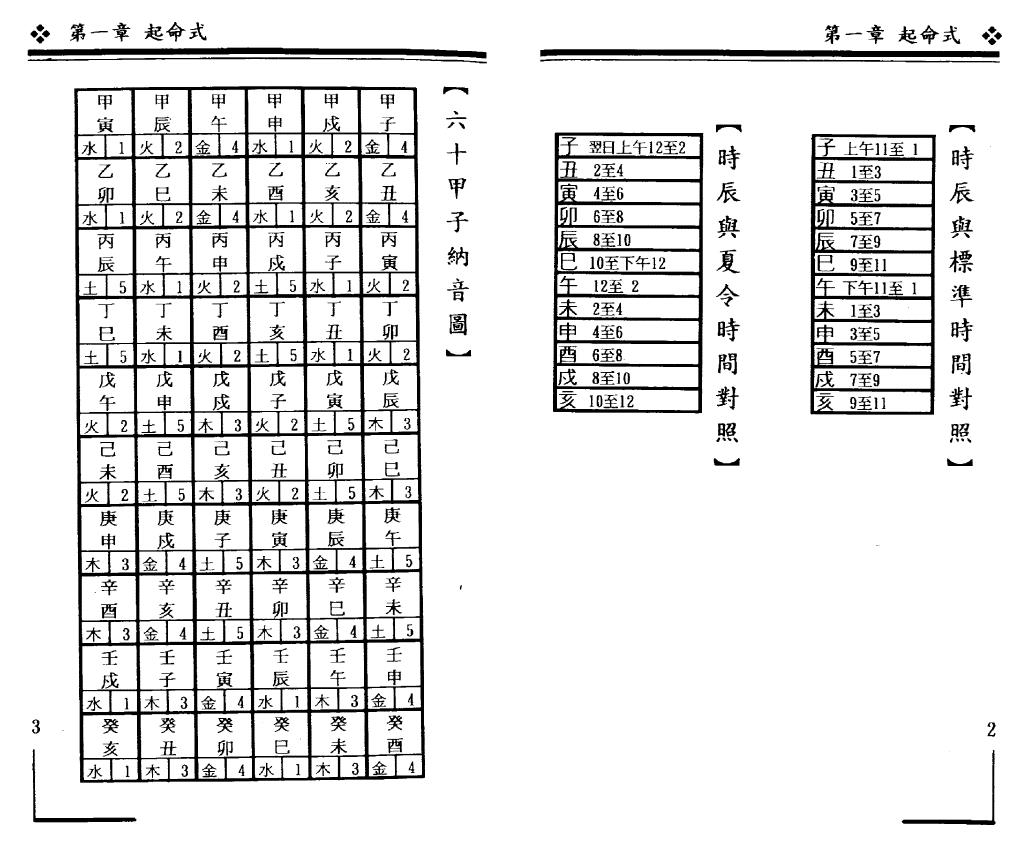 第一章 起命式
【時辰與標準時間對照】
子 上午11至 1
丑 1至3
寅 3至5
卯 5至7
辰 7至9
巳 9至11
午 下午11至 1
未 1至3
申 3至5
酉 5至7
戌 7至9
亥 9至11
【時辰與夏令時間對照】
子 翌日上午12至2
丑 2至4
寅 4至6
卯 6至8
辰 8至10
巳 10至下午12
午 12至 2
未 2至4
申 4至6
酉 6至8
戌 8至10
亥 10至12
2
第一章 起命式
【六十甲子納音圖】
甲 甲 甲 甲 甲 甲
寅 辰 午 申 戌 子
水 1 火 2 金 4 水 1 火 2 金 4
乙 乙 乙 乙 乙 乙
卯 巳 未 酉 亥 丑
水 1 火 2 金 4 水 1 火 2 金 4
丙 丙 丙 丙 丙 丙
辰 午 申 戌 子 寅
土 5 水 1 火 2 土 5 水 1 火 2
丁 丁 丁 丁 丁 丁
巳 未 酉 亥 丑 卯
土 5 水 1 火 2 土 5 水 1 火 2
戊 戊 戊 戊 戊 戊
午 申 戌 子 寅 辰
火 2 土 5 木 3 火 2 土 5 木 3
己 己 己 己 己 己
未 酉 亥 丑 卯 巳
火 2 土 5 木 3 火 2 土 5 木 3
庚 庚 庚 庚 庚 庚
申 戌 子 寅 辰 午
木 3 金 4 土 5 木 3 金 4 土 5
辛 辛 辛 辛 辛 辛
酉 亥 丑 卯 巳 未
木 3 金 4 土 5 木 3 金 4 土 5
壬 壬 壬 壬 壬 壬
戌 子 寅 辰 午 申
水 1 木 3 金 4 水 1 木 3 金 4
癸 癸 癸 癸 癸 癸
亥 丑 卯 巳 未 酉
水 1 木 3 金 4 水 1 木 3 金 4
3